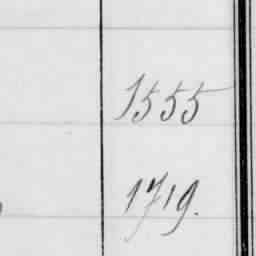 1555
1719.